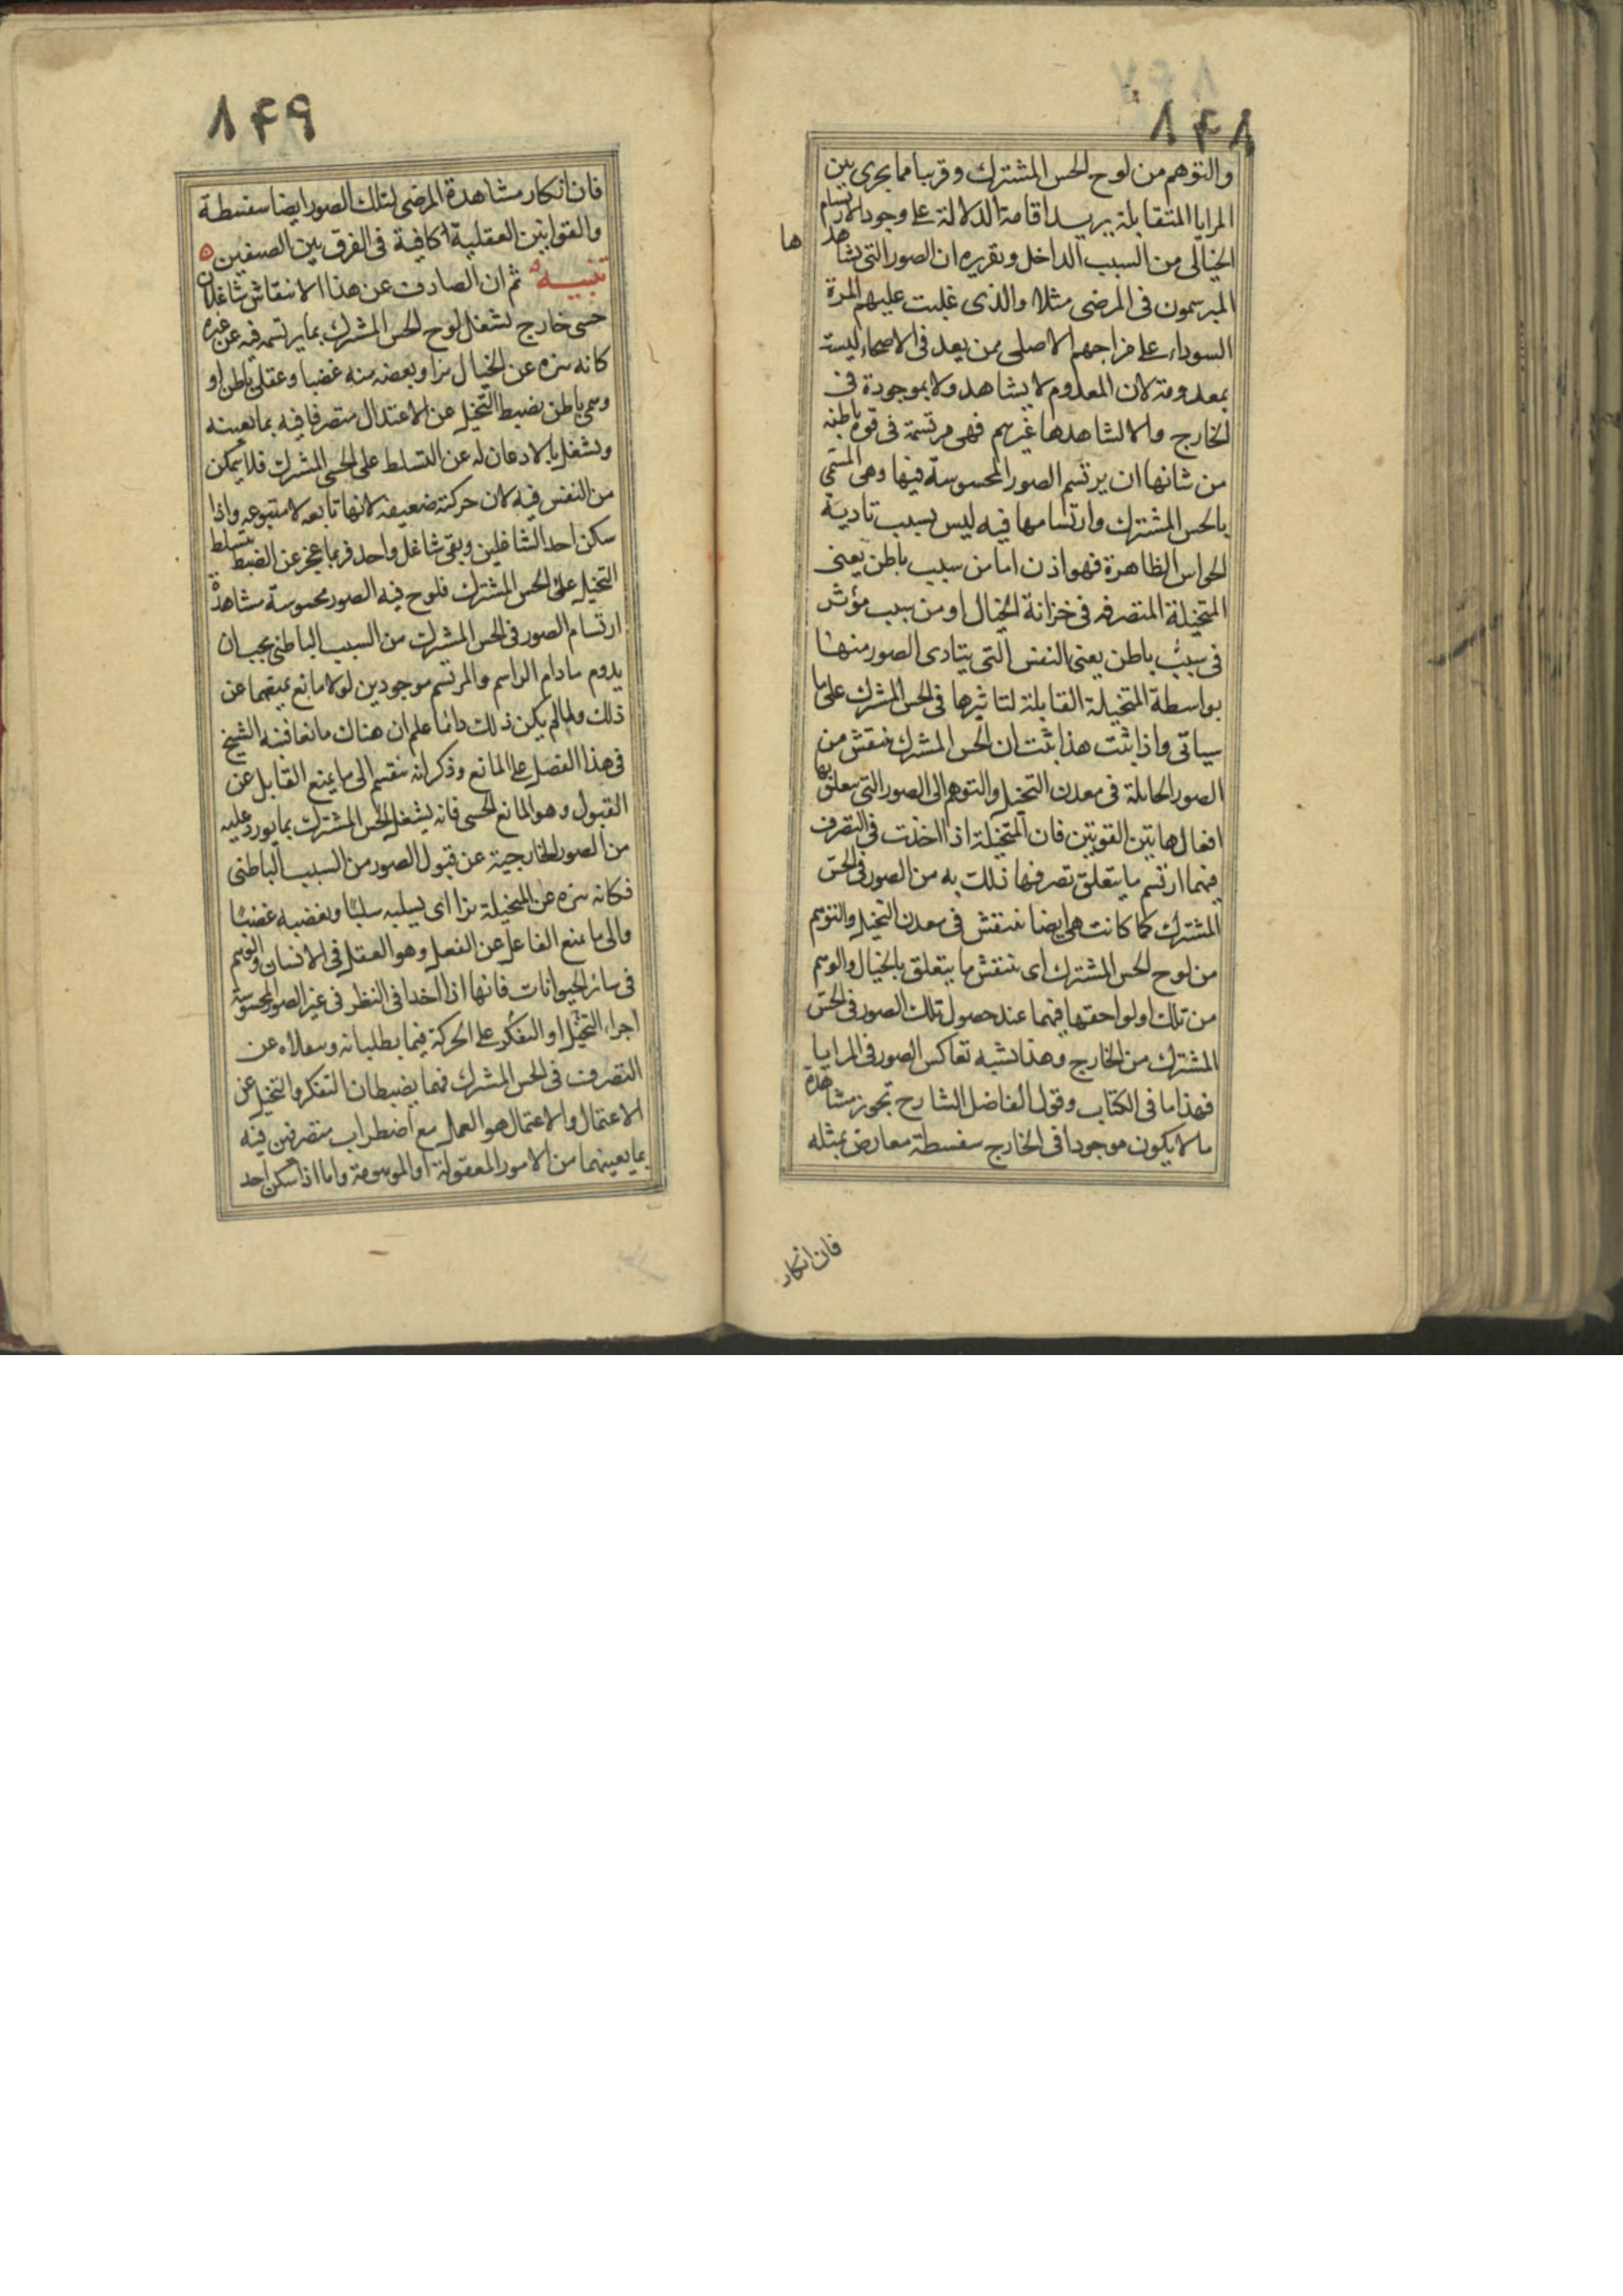 ٨٤٨
والتوهم من لوح الحس المشترك وقريبا مما يجرى بين
المرايا المتقابلة يريد اقامة الدلالة على وجود الارتسام
الخيالى من السبب الداخل وتقريره ان الصور التى يشاهد
ها
المبرسمون فى المرضى مثلا والذى غلبت عليهم المرة
السوداء على مزاجهم الاصلى ممن يعد فى الاصحاء ليست
بمعدومة لان المعدوم لا يشاهد ولا بموجودة فى
الخارج والا لشاهدها غيرهم فهى مرتسمة فى قوة باطنة
من شانها ان يرتسم الصور المحسوسة فيها وهى المسمى
بالحس المشترك وارتسامها فيه ليس بسبب تادية
الحواس الظاهرة فهو اذن اما من سبب باطن يعنى
المتخيلة المتصرفه فى خزانة الخيال او من سبب مؤثر
فى سبب باطن يعنى النفس التى يتادى الصور منها
بواسطة المتخيلة القابلة لتاثيرها فى الحس المشترك على ما
سياتى واذا ثبت هذا ثبت ان الحس المشترك ينتقش من
الصور الحاملة فى معدن التخيل والتوهم الى الصور التى يتعلق بها
افعال هاتين القوتين فان المتخيلة اذا اخذت فى التصرف
فيهما ارتسم ما يتعلق تصرفها ذلك به من الصور فى الحس
المشترك كما كانت هى ايضا تنتقش فى معدن التخيل والتوهم
من لوح الحس المشترك اى تنتقش ما يتعلق بالخيال والوهم
من تلك او لواحقها فيهما عند حصول تلك الصور فى الحس
المشترك من الخارج وهذا يشبه تعاكس الصور فى المرايا
فهذا ما فى الكتاب وقول الفاضل الشارح تجويز مشاهدة
ما لا يكون موجودا فى الخارج سفسطة معارض بمثله
فان انكار
٨٤٩
فان انكار مشاهدة المرضى لتلك الصور ايضا سفسطة
والقوانين العقلية كافية فى الفرق بين الصنفين ه
تنبيه ثم ان الصارف عن هذا الانتقاش شاغلان
حسى خارج يشغل لوح الحس المشترك بما يرتسمه فيه عن غيره
كانه يبزه عن الخيال بزا ويغصبه منه غصبا وعقلى باطن او
وهمى باطن يضبط التخيل عن الاعتدال متصرفا فيه بما يعينه
ويشغل بالاذعان له عن التسلط على الحس المشترك فلا يتمكن
من النفس فيه لان حركته ضعيفه لانها تابعه لا متبوعه واذا
سكن احد الشاغلين وبقى شاغل واحد فربما عجز عن الضبط فتسلط
التخيل على الحس المشترك فلوح فيه الصور محسوسة مشاهدة
ارتسام الصور فى الحس المشترك من السبب الباطنى يجب ان
يدوم مادام الراسم والمرتسم موجودين لولا مانع يمنعهما عن
ذلك ولما لم يكن ذلك دائما علم ان هناك مانعا فنبه الشيخ
فى هذا الفصل على المانع وذكر انه ينقسم الى ما يمنع القابل عن
القبول وهو المانع الحسى فانه يشغل الحس المشترك بما يورد عليه
من الصور الخارجية عن قبول الصور من السبب الباطنى
فكانه يبزه عن المتخيلة بزا اى يسلبه سلبا ويغصبه غصبا
والى ما يمنع الفاعل عن الفعل وهو العقل فى الانسان والوهم
فى سائر الحيوانات فانها اذا اخذا فى النظر فى غير الصور المحسوسة
اجبرا التخيل او التفكر على الحركة فيما يطلبانه وشغلاه عن
التصرف فى الحس المشترك فهما يضبطان التفكر والتخيل عن
الاعتمال والاعتمال هو العمل مع اضطراب متصرفين فيه
بما يعينهما من الامور المعقولة او الموهومة واما اذا سكن احد